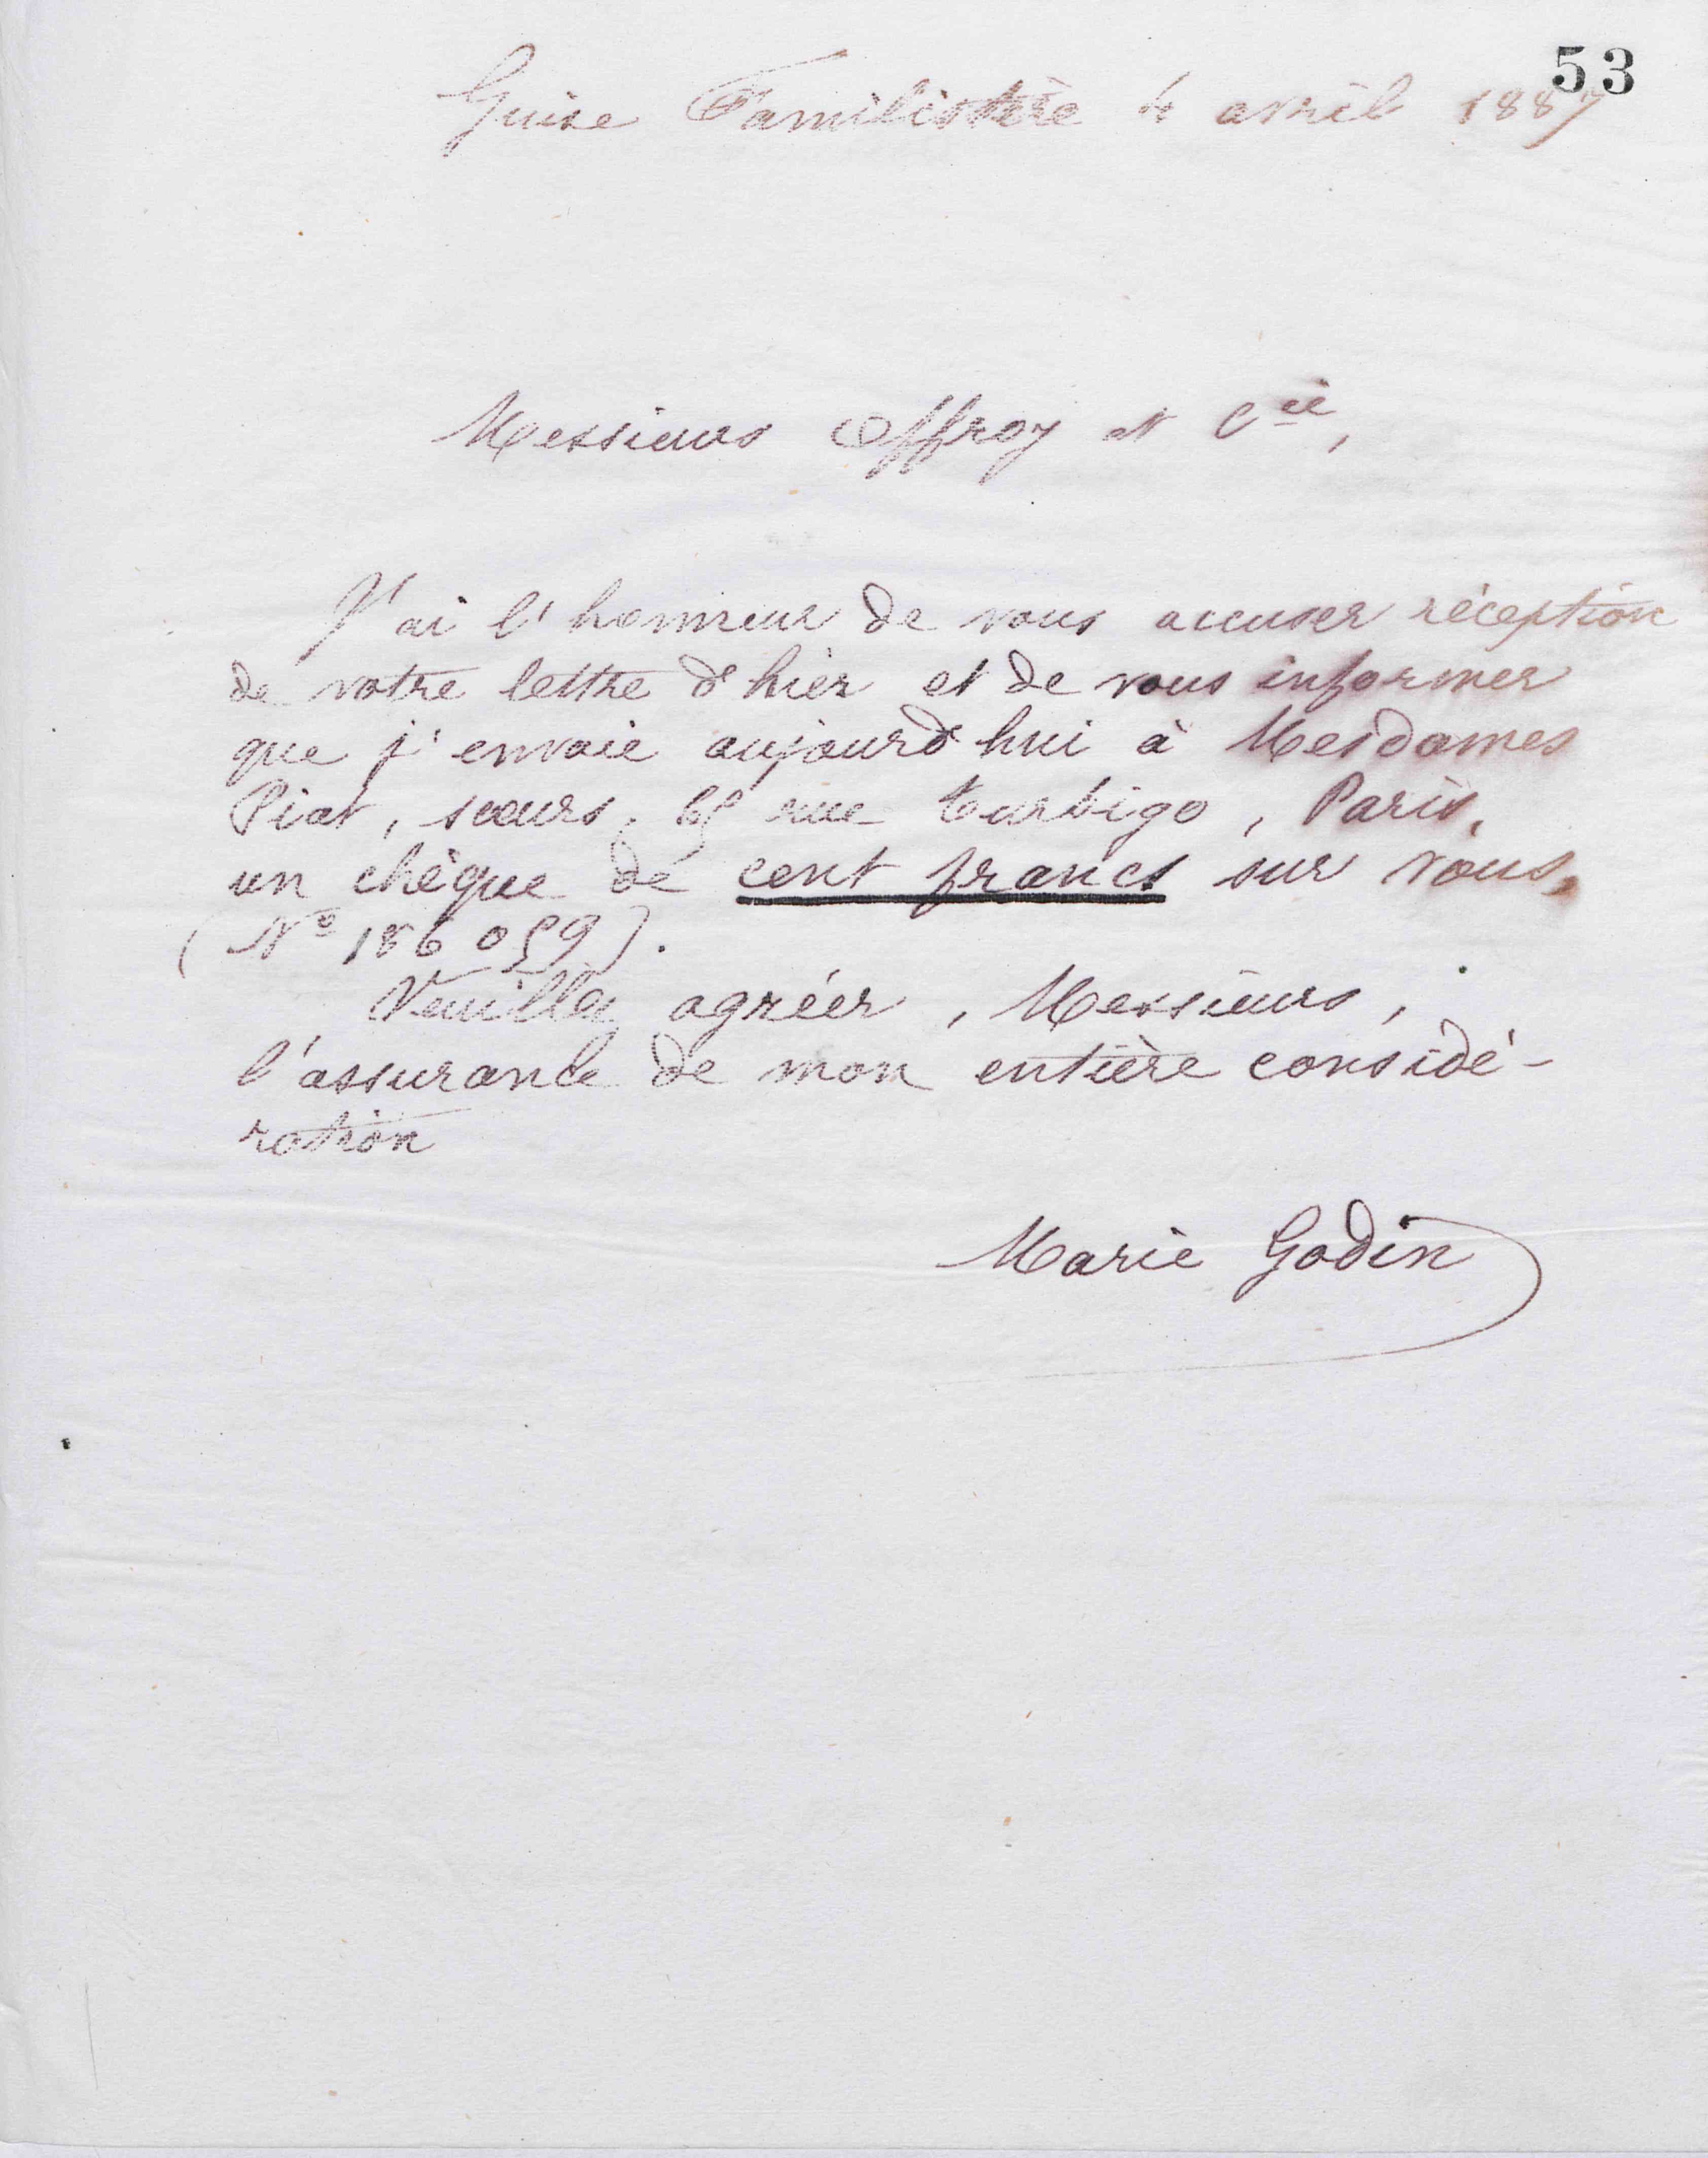 53
Guise Familistère 4 avril 1887
Messieurs Offroy et Cie,
J'ai l'honneur de vous accuser réception
de votre lettre d'hier et de vous informer
que j'envoie aujourd'hui à Mesdames
Piat, sœurs, 65 rue Turbigo, Paris,
un chèque de cent francs sur vous,
(No 186059).
Veuillez agréer, Messieurs,
l'assurance de mon entière considé-
ration
Marie Godin